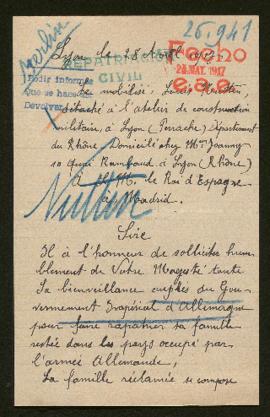 26.941
Berlin
Lyon le 28 Avril 1917
REPATRIAC
CIVIL
Fecho
26. MAY. 1917
e.e.e.
Pedir informe
que se hace
Devolver
Le mobilisé, Louis
détaché à l'atelier de construction
militaire, à Lyon (Perrache) Département
du Rhône Domicilié chez Mme
10 Quai Rambaud à Lyon (Rhône)
A S. M. le Roi d'Espagne
à Madrid.
Nuttin
Sire
Il à l'honneur de solliciter hum
blement de Votre Majesté toute
Sa bienveillance auprès du Gou-
vernement Impérial d'Allemagne
pour faire rapatrier sa famille
restée dans les pays occupé par
l'armée Allemande,
La famille réclamée se compose